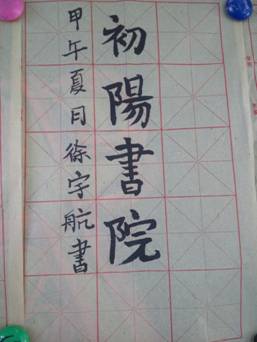 初陽書院
甲午夏月徐宇航書